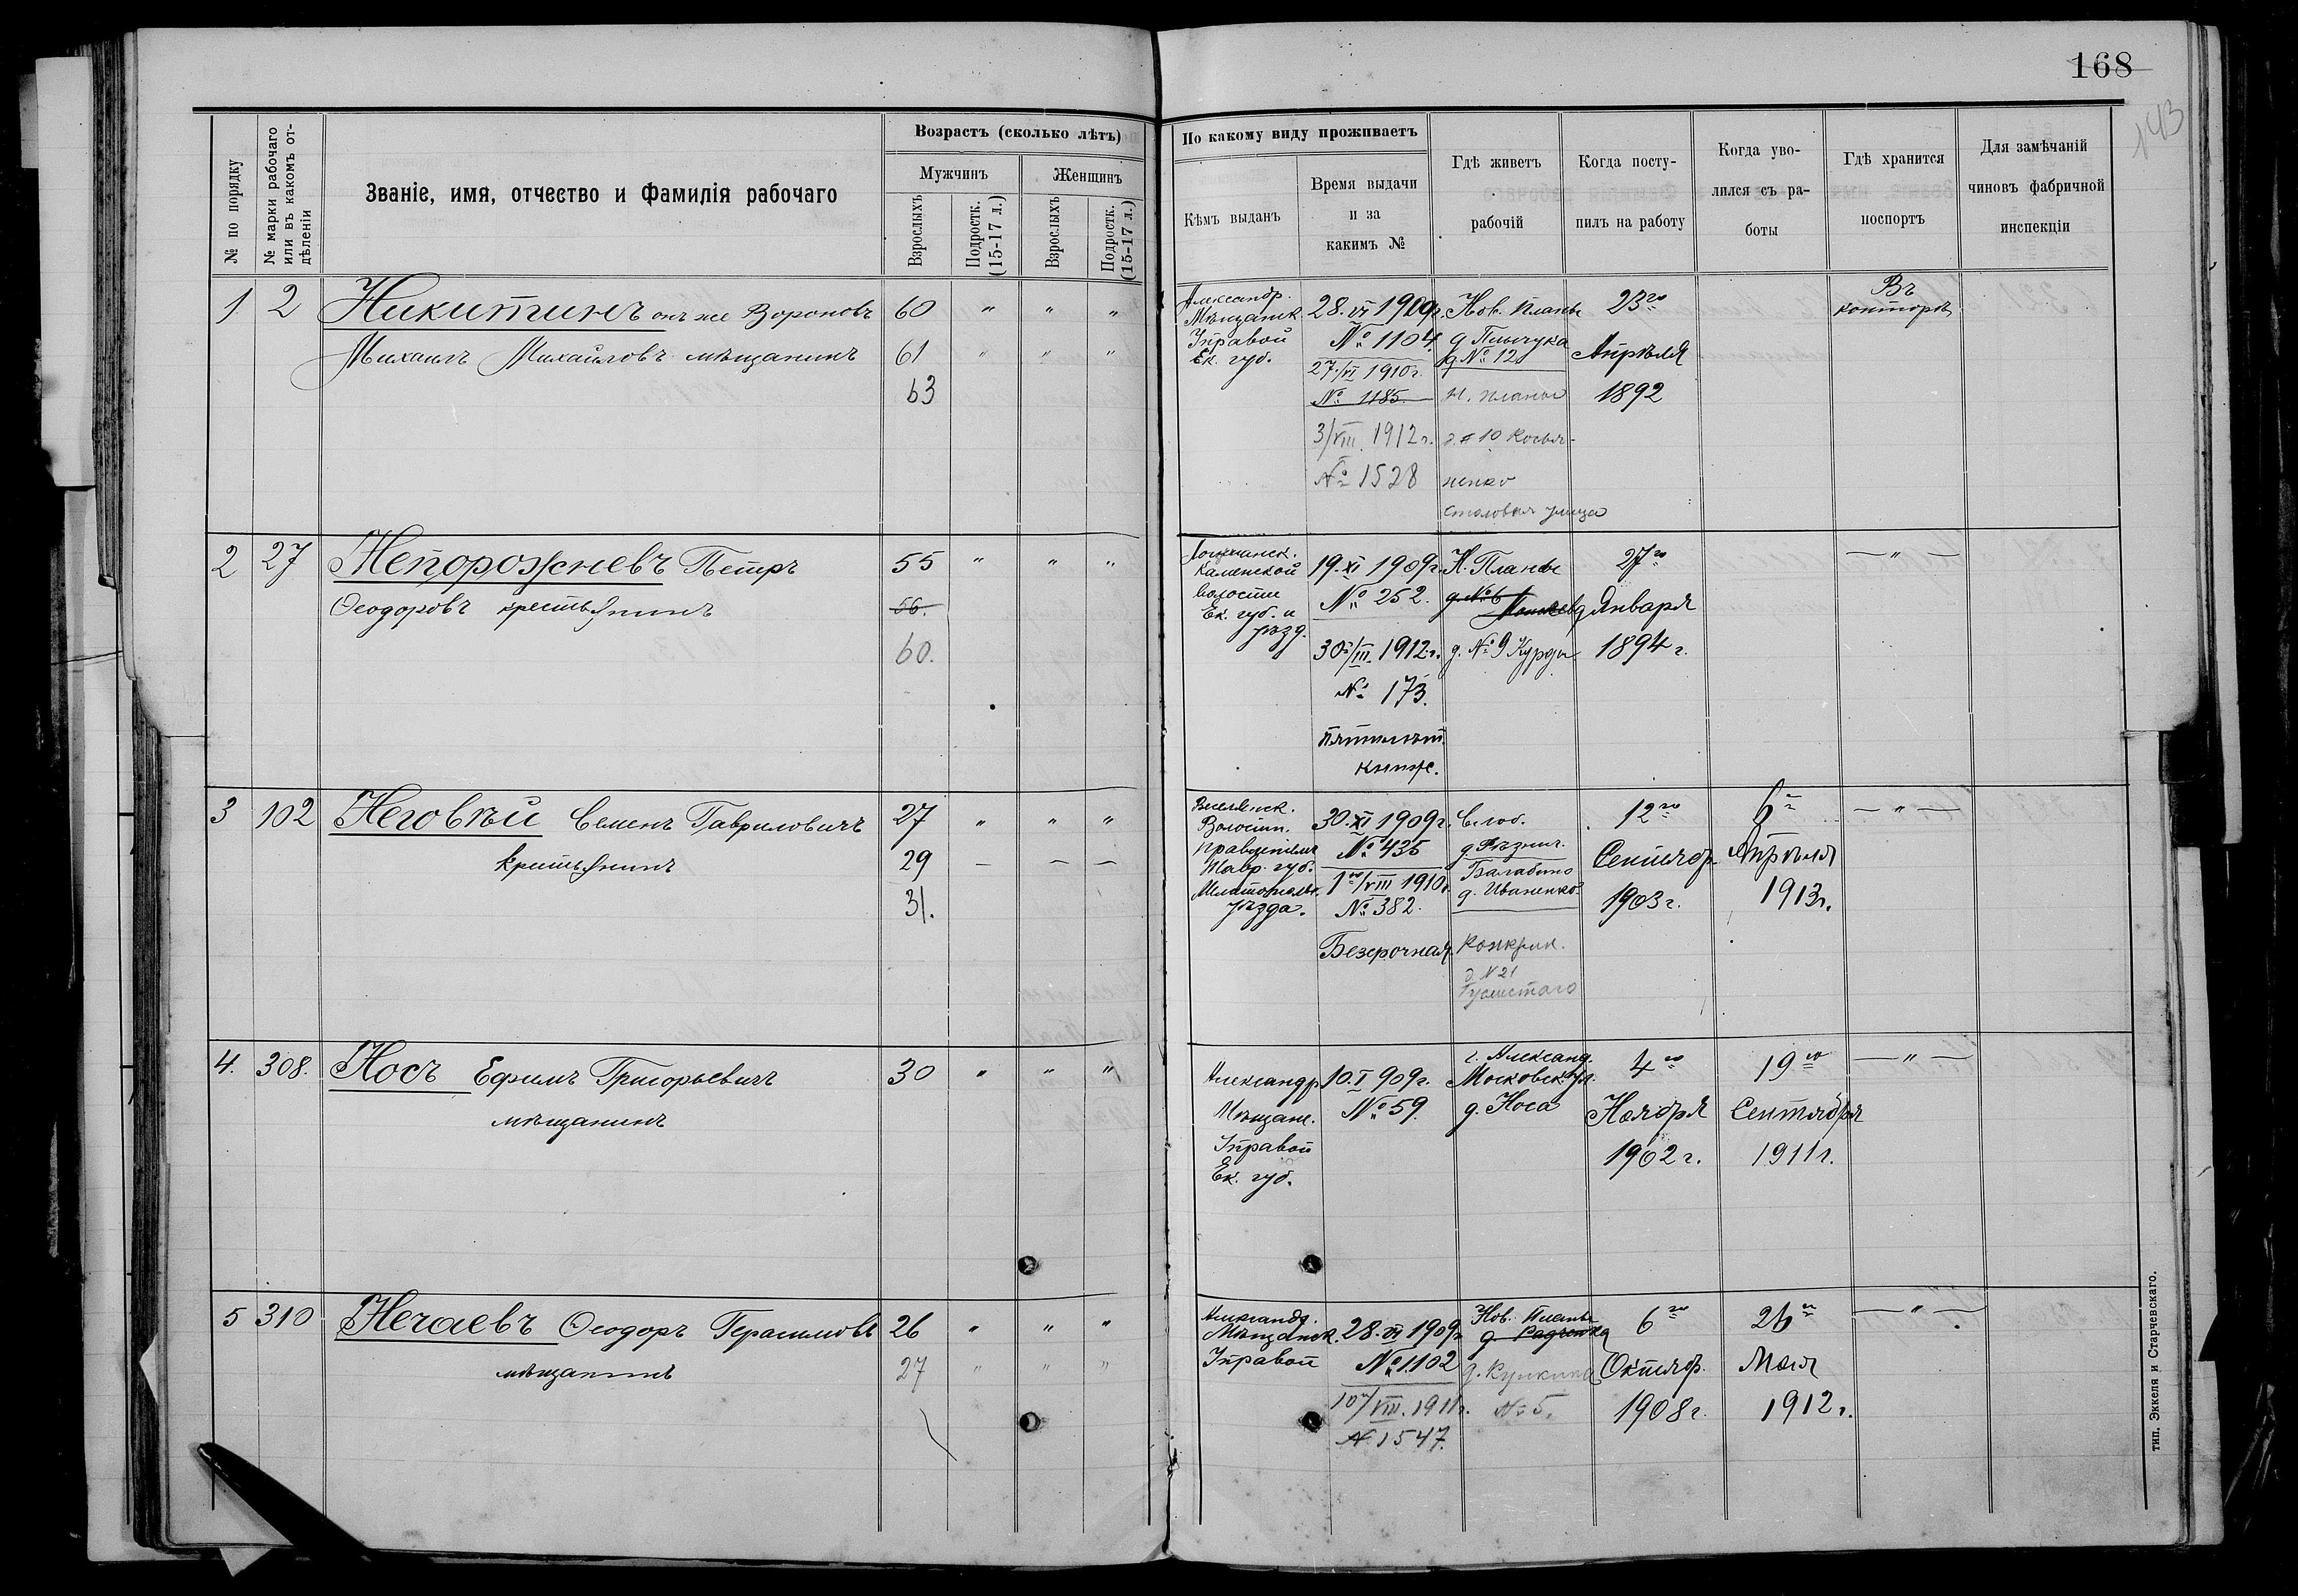 168
143
№ по порядку
№ марки рабочаго или въ какомъ отдѣленіи
Званіе, имя, отчество и Фамилія рабочаго
Возрастъ (сколько лѣтъ)
Мужчинъ
Женщинъ
Взрослыхъ
Подростк. (15-17 л.)
Взрослыхъ
Подростк. (15-17 л.)
По какому виду проживаетъ
Кѣмъ выданъ
Время выдачи
и за
какимъ №
Гдѣ живетъ
рабочій
Когда посту-
пилъ на работу
Когда уво-
лился съ ра-
боты
Гдѣ хранится
поспортъ
Для замѣчаній
чиновъ фабричной
инспекціи
1 2 Никитинъ онъ же Вороновъ 60 " " "
Михаилъ Михайловъ мѣщанинъ 61 " " "
63
Александр.
Мѣщанск
Управой
Ек. губ.
28.VI 1909г.
№ 1104.
27/VI 1910г.
№ 1185.
3/VIII 1912г.
№ 1528
Нов. планы
д №12
н. планы
столовая улица
23го
Апрѣля
1892
Въ
конторѣ
2 27 Непорожневъ Петръ 55 " " "
Ѳеодоровъ крестьянинъ 56.
60.
Каменской
волости
Ек. губ. и
уѣзд.
19.XI 1909г.
№ 252.
30/III 1912г.
№ 173.
пятилѣт.
книж.
Н. Планы
д.№6
д. №9
27го
Января
1894г.
— " —
3 102 Неговѣй Семенъ Гавриловичъ 27 " " "
крестьянинъ 29 — — —
31.
Волостн.
Правленіем
Тавр. губ.
Мелитопольс.
уѣзда.
30.XI 1909г.
№ 435
1го/VIII 1910г.
№ 382.
Безсрочная
Слоб.
Балабино
д. Иваненко
д N 21
12го
Сентябр.
1903г.
6го
Апрѣля
1913г.
— " —
4. 308. Носъ Ефимъ Григорьевичъ 30 " " "
мѣщанинъ
Александр
Мѣщанс.
Управой
Ек. губ.
10.I 909г.
№ 59
г. Александ.
Московск. ул.
д. Носа
4го
Ноября
1902г.
19го
Сентября
1911г.
— " —
5 310 Нечаевъ Ѳеодоръ Герасимовъ 26 " " "
мѣщанинъ 27 " " "
Александр.
Мѣщанск.
Управой
28.VI 1909г.
№1102
10/VIII.1911г.
№1547.
Нов. Планы
д. Радченка
№ 5.
6го
Октябр.
1908г.
26го
Мая
1912г.
— " —
тип. Эккеля и Старчевскаго.